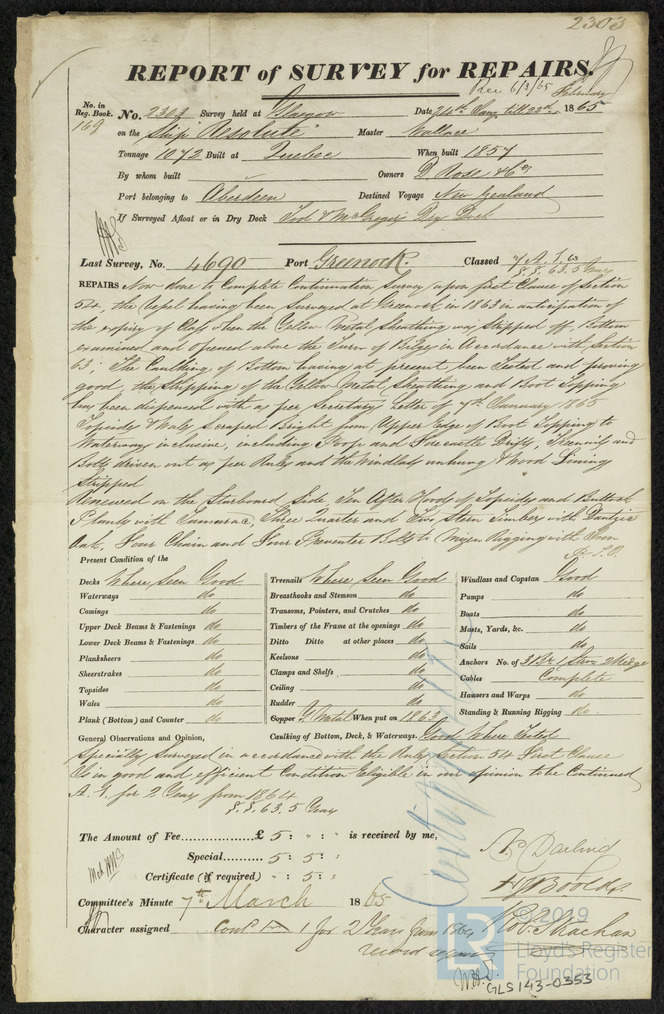 2303
REPORT of SURVEY for REPAIRS.
Rec 6/3/65
No. in Reg. Book. No. 2303 Survey held at Glasgow Date 24th Jany till 23rd February 1865
169 on the Ship "Resolute" Master Wallace
Tonnage 1072 Built at Quebec When built 1857
By whom built Owners D Rose & Co
Port belonging to Aberdeen Destined Voyage New Zealand
If Surveyed Afloat or in Dry Dock Tod & McGregors Dry Dock
Last Survey, No. 4690 Port Greenock. Classed A. 1.
8.8.63.5 Years
REPAIRS Now done to Complete Continuation Survey upon first Clause of Section
54, the Vessel having been Surveyed at Greenock in 1863 in anticipation of
the expiry of Class when the Yellow Metal Sheathing was stripped off, Bottom
examined and opened above the Turn of Bilges in Accordance with Section
63; The Caulking of Bottom having at present been Tested and proving
good, the stripping of the Yellow Metal Sheathing and Boot Topping
has been dispensed with as per Secretarys Letter of 7th January 1865
Topsides & Wales scraped Bright from Upper Edge of Boot Topping to
Waterways inclusive, including Poop and Forecastle Drifts, Treenails and
Bolts driven out as per Rules and the Windlass unhung & Wood Lining
Stripped
Renewed on the Starboard Side Ten After Hoods of Topsides and Buttock
Planks with Tamarac Three Quarter and Two Stern Timbers with Dantzic
Oak, Four Chain and Four Preventer Bolts to Mizen Rigging with Iron
P. T. O.
Present Condition of the
Decks Where Seen Good
Waterways do
Comings do
Upper Deck Beams & Fastenings do
Lower Deck Beams & Fastenings do
Planksheers do
Sheerstrakes do
Topsides do
Wales do
Plank (Bottom) and Counter do
Treenails Where Seen Good
Breasthooks and Stemson do
Transoms, Pointers, and Crutches do
Timbers of the Frame at the openings do
Ditto Ditto at other places do
Keelsons do
Clamps and Shelfs do
Ceiling do
Rudder do
Copper Y. Metal When put on 1863
Windlass and Capstan Good
Pumps do
Boats do
Masts, Yards, &c. do
Sails do
Anchors No. of 3 Br 1 Strm 2 Kedge
Cables Complete
Hausers and Warps do
Standing & Running Rigging do
General Observations and Opinion, Caulking of Bottom, Deck, & Waterways. Good Where Tested
Specially Surveyed in accordance with the Rules Section 54 First Clause
Is in good and efficient Condition Eligible in our opinion to be Continued
A. 1. for 2 Years from 1864
8.8.63.5 Years
The Amount of Fee £ 5 : " : " is received by me,
Special 5 : 5 : "
Certificate (if required) " : 5 : "
Committee's Minute 7th March 1865
Character assigned Contd A 1 for 2 Years from 1864
A Darling
H J Boolds
Certificate
© 2019
Lloyd's Register
Foundation
LR
GLS143-0353